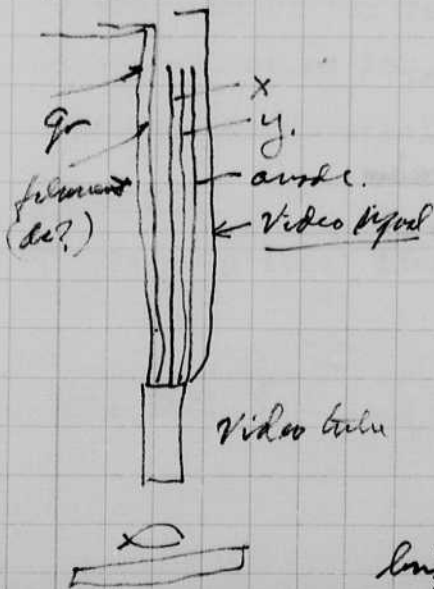 gr
x
y.
filament
(dc?)
anode.
Video signal
Video tube